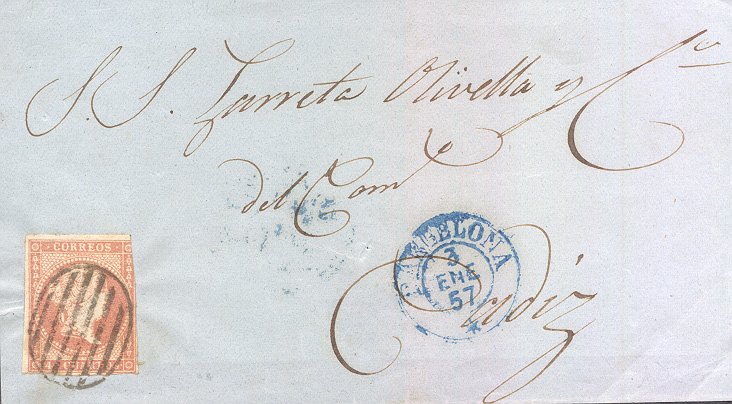 S. S. Larreta Olivella y Cª
del Comº
Cadiz
CORREOS
BARCELONA
3
ENE
57